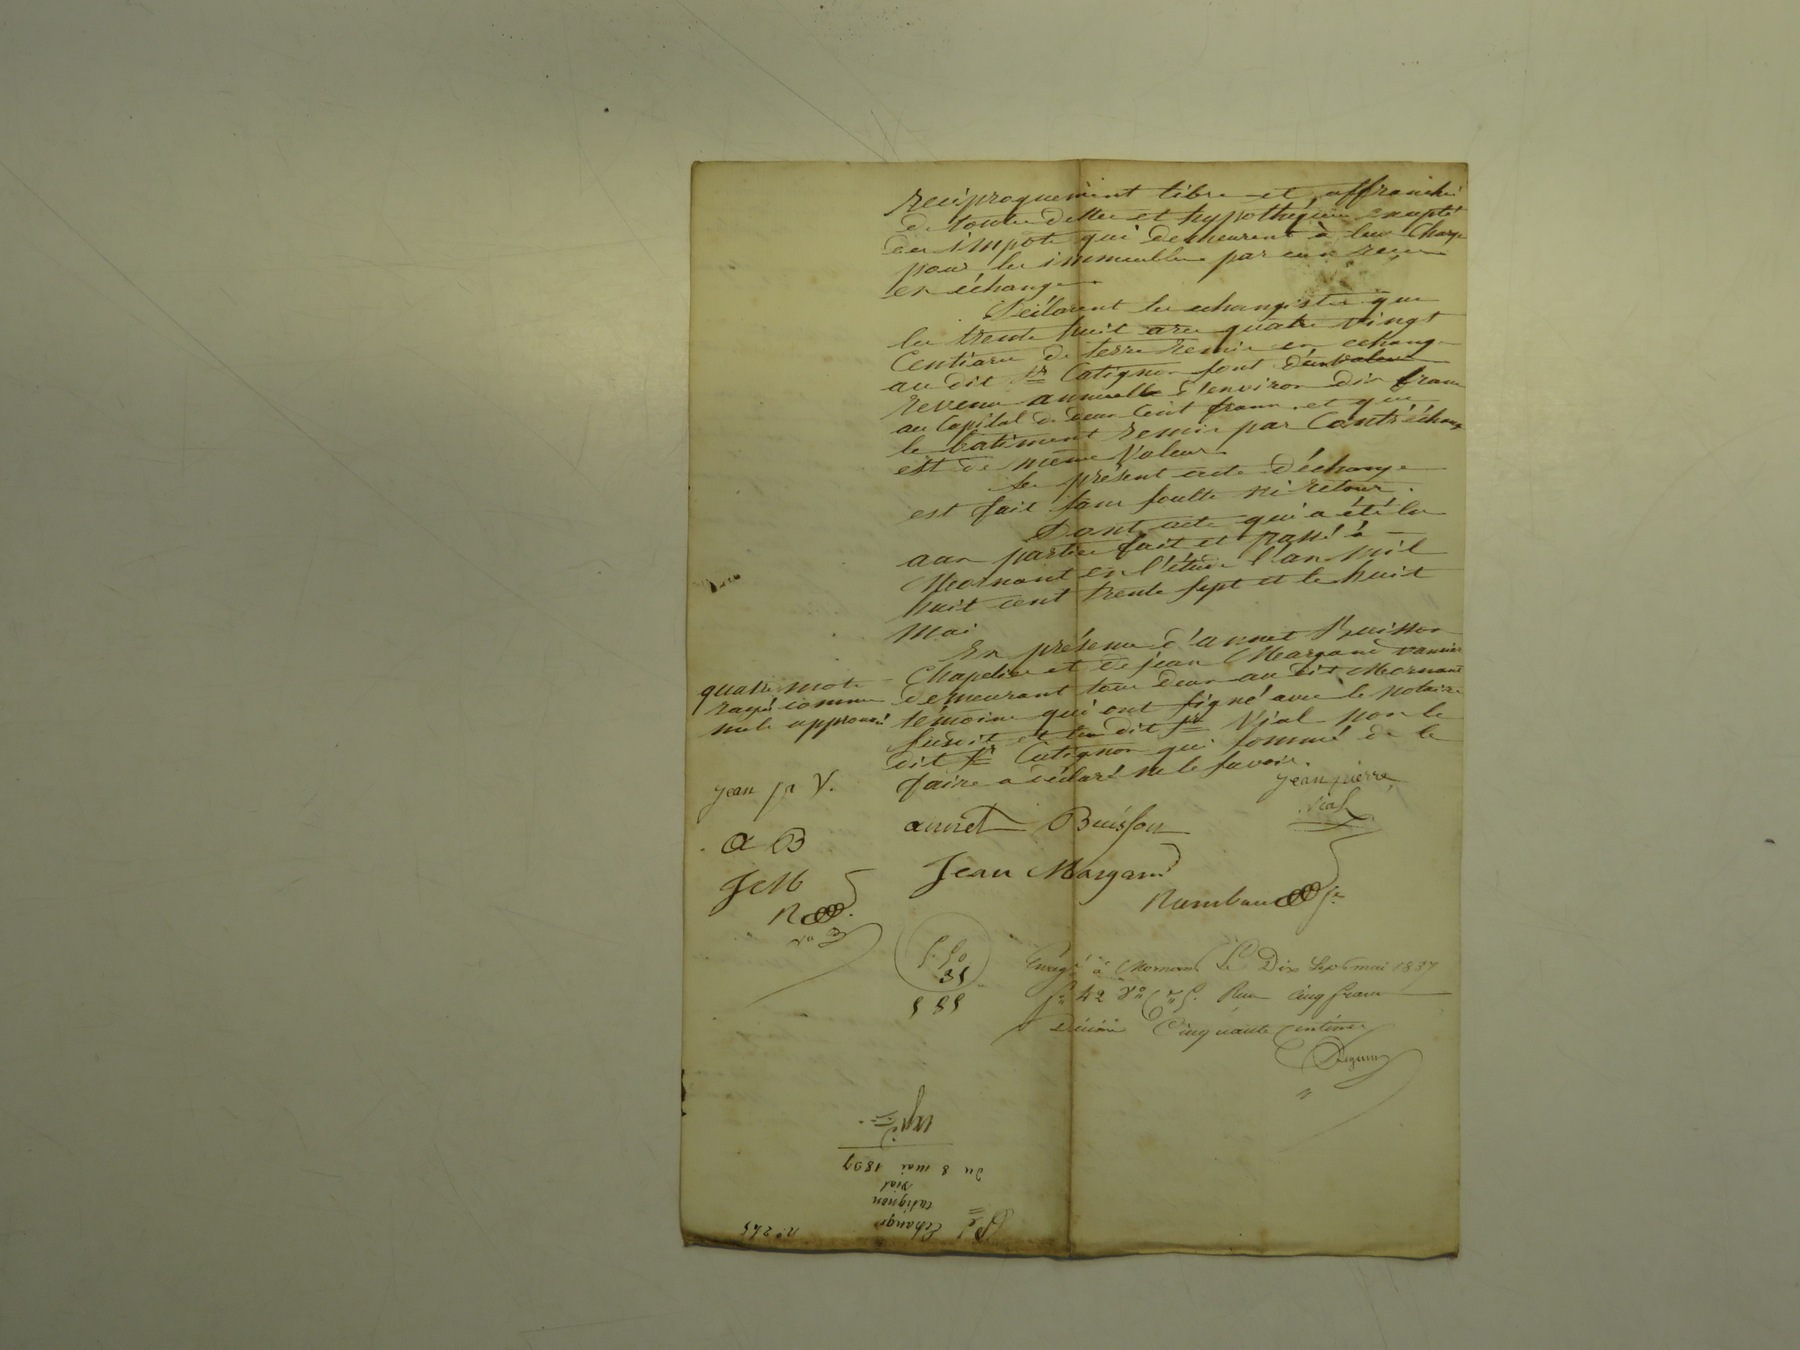 réciproquement libre et affranchi
de toutes dettes et hypothèques excepté
des impots qui demeurent à leur charge
pour les immeubles par eux reçus
en échange.
Déclarent les echangistes que
les trente huit ares quatre vingt
Centiares de terre remis en echange
au dit Sr Catignon sont d'un valeur
revenu annuelle d'environ dix francs
au Capital de deux Cent francs et que
le batiment remis par Contréchange
est de même Valeur.
Le présent acte d'échange
est fait sans soulte ni retour.
Dont acte qui a été lu
aux parties fait et passé à
Mornant en l'étude l'an mil
huit cent trente sept et le huit
Mai
En présence d'annet Buisson
Chapelier et de jean Margand vannier
demeurant tous deux au dit Mornant
témoins qui ont signé avec le notaire
susdit et le dit Sr Vial non le
dit Sr Catignon qui sommé de le
faire a déclaré ne le savoir.
quatre mots
rayés comme
nuls approuvé
Jean pr V.
a B
JM
R
Jean pierre
vial
annet Buisson
Jean Margand
Rambaud
5.50
55
Enregé à Mornant Le Dix Sept mai 1837
fo 42 Vo Reçu cinq francs
Décime Cinquante Centimes
no 245
Echange
catignon
vial
Du 8 mai 1837
expéd